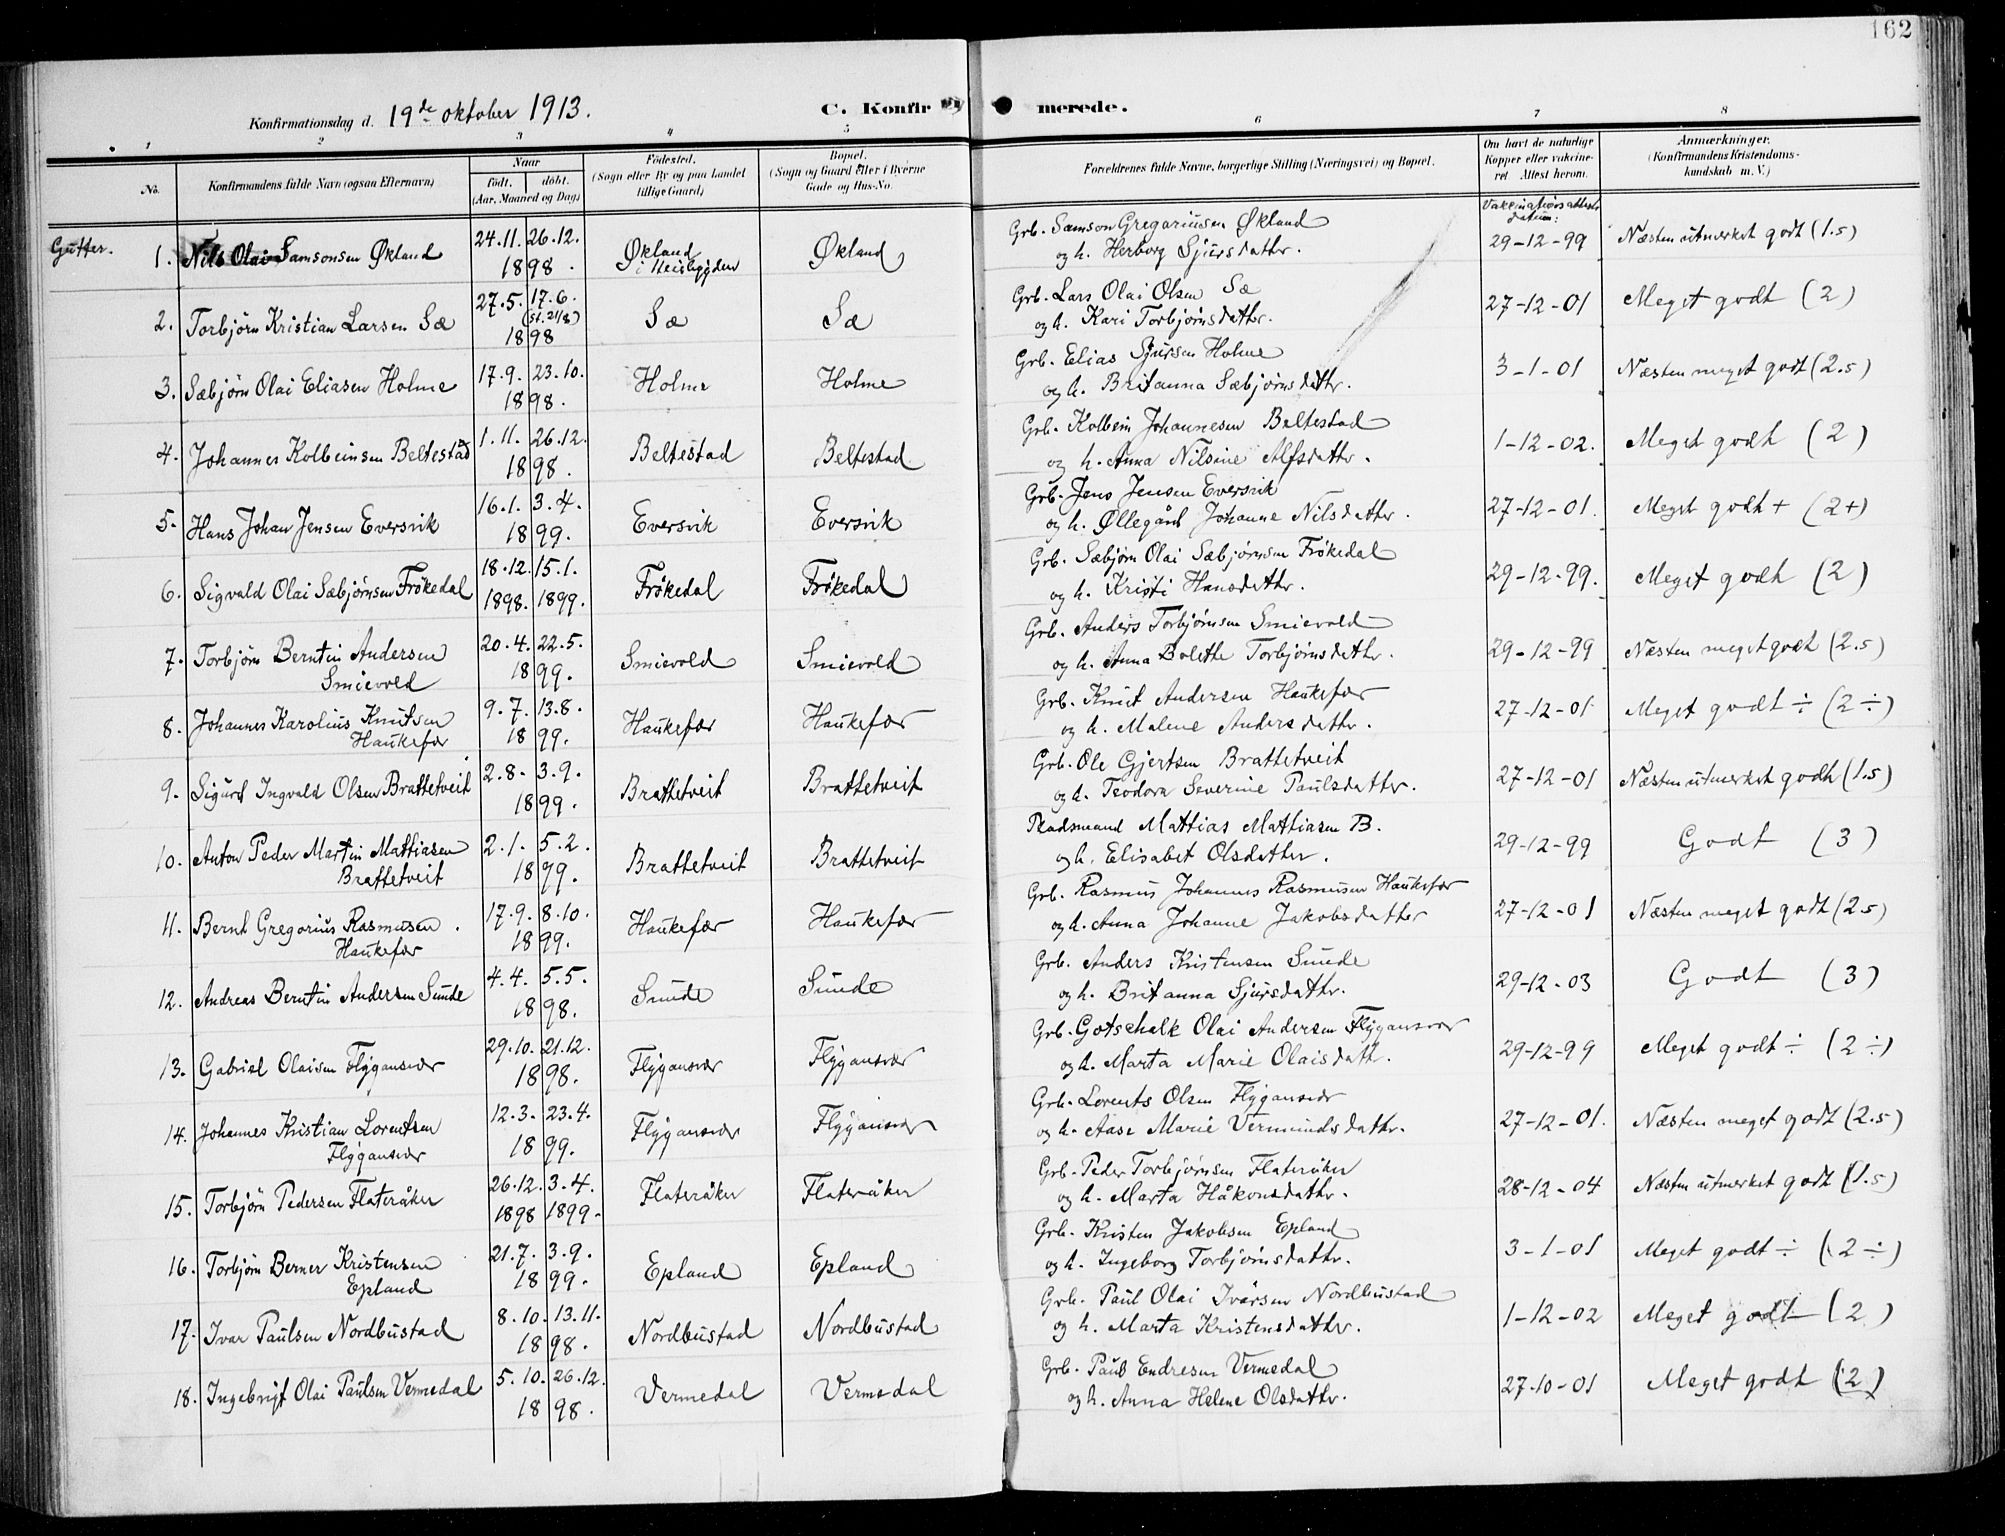 162
Konfirmationsdag d. 19de oktober 1913.
C. Konfirmerede.
1 2 3 4 5 6 7 8
No.
Konfirmandens fulde Navn (ogsaa Efternavn)
Naar
født. døbt.
(Aar, Maaned og Dag)
Fødested.
(Sogn eller By og paa Landet
tillige Gaard)
Bopæl.
(Sogn og Gaard eller i Byerne
Gade og Hus-No.
Forældrenes fulde Navne, borgerlige Stilling (Næringsvei) og Bopæl.
Om havt de naturlige
Kopper eller vakcine-
ret Attest herom.
Anmærkninger.
(Konfirmandens Kristendoms-
kundskab m. V.)
Vakcinationsattests
datum:
Gutter.
1. Nils Olai Samsonsen Økland 24.11. 26.12. 1898. Økland Økland Grb. Samson Gregariusen Økland 29-12-99 Næsten utmerket godt (1.5)
og h. Herborg Sjursdatter.
2. Torbjørn Kristian Larsen Sæ 27.5. 17.6. (st. 21/8) 1898 Sæ Sæ Grb. Lars Olai Olsen Sæ 27-12-01 Meget godt (2)
og h. Kari Torbjørnsdatter.
3. Sæbjørn Olai Eliasen Holme 17.9. 23.10. 1898. Holme Holme Grb. Elias Sjursen Holme 3-1-01 Næsten meget godt (2.5)
og h. Britanna Sæbjørnsdattr.
4. Johannes Kolbeinsen Beltestad 1.11. 26.12. 1898. Beltestad Beltestad Grb. Kolbein Johannesen Beltestad 1-12-02. Meget godt (2)
og h. Anna Nilsine Alfsdattr.
5. Hans Johan Jensen Eversvik 16.1. 3.4. 1899. Eversvik Eversvik Grb. Jens Jensen Eversvik 27-12-01. Meget godt + (2+)
og h. Øllegård Johanne Nilsdatter.
6. Sigvald Olai Sæbjørnsen Frøkedal 18.12. 15.1. 1898. 1899. Frøkedal Frøkedal Grb. Sæbjørn Olai Sæbjørnsen Frøkedal 29-12-99. Meget godt (2)
og h. Kristi Hansdatter.
7. Torbjørn Berntin Andersen 20.4. 22.5. 1899. Smievold Smievold Grb. Anders Torbjørnsen Smievold 29-12-99 Næsten meget godt (2.5)
Smievold og h. Anna Bolette Torbjørnsdattr.
8. Johannes Karolius Knutsen 9.7. 13.8. 1899. Haukefær Haukefær Grb. Knut Andersen Haukefær 27-12-01 Meget godt ÷ (2÷)
Haukefær og h. Malene Andersdattr.
9. Sigurd Ingvald Olsen Brattetveit 2.8. 3.9. 1899. Brattetveit Brattetveit Grb. Ole Gjertsen Brattetveit 27-12-01 Næsten utmerket godt (1.5)
og h. Teodora Severine Paulsdatter.
10. Anton Peder Martin Mattiasen 2.1. 5.2. 1899. Brattetveit Brattetveit Pladsmand Mattias Mattiasen B. 29-12-99 Godt (3)
Brattetveit og h. Elisabet Olsdatter.
11. Bernt Gregorius Rasmusen 17.9. 8.10. 1899. Haukefær Haukefær Grb. Rasmus Johannes Rasmusen Haukefær 27-12-01 Næsten meget godt (2.5)
Haukefær og h. Anna Johanne Jakobsdatter
12. Andreas Berntin Andersen Sunde 4.4. 5.5. 1898. Sunde Sunde Grb. Anders Kristensen Sunde 29-12-03 Godt (3)
og h. Britanna Sjursdattr.
13. Gabriel Olaisen Flygansvær 29.10. 21.12. 1898. Flygansvær Flygansvær Grb. Gotschalk Olai Andersen Flygansvær 29-12-99 Meget godt ÷ (2÷)
og h. Marta Marie Olaisdatt.
14. Johannes Kristian Lorentsen 12.3. 23.4. 1899. Flygansvær Flygansvær Grb. Lorents Olsen Flygansvær 27-12-01. Næsten meget godt (2.5)
Flygansvær og h. Aase Marie Vermundsdattr.
15. Torbjørn Pedersen Flateråker 26.12. 3.4. 1898 1899. Flateråker Flateråker Grb. Peder Torbjørnsen Flateråker 28-12-04 Næsten utmerket godt (1.5)
og h. Marta Håkonsdattr.
16. Torbjørn Berner Kristensen 21.7. 3.9. 1899. Epland Epland Grb. Kristen Jakobsen Epland 3-1-01 Meget godt ÷ (2÷)
Epland og h. Ingeborg Torbjørnsdattr.
17. Ivar Paulsen Nordbustad 8.10. 13.11. 1898. Nordbustad Nordbustad Grb. Paul Olai Ivarsen Nordbustad 1-12-02 Meget godt (2)
og h. Marta Kristensdattr.
18. Ingebrigt Olai Paulsen Vermedal 5.10. 26.12. 1898. Vermedal Vermedal Grb. Paul Endresen Vermedal 27-10-01 Meget godt (2)
og h. Anna Helene Olsdattr.